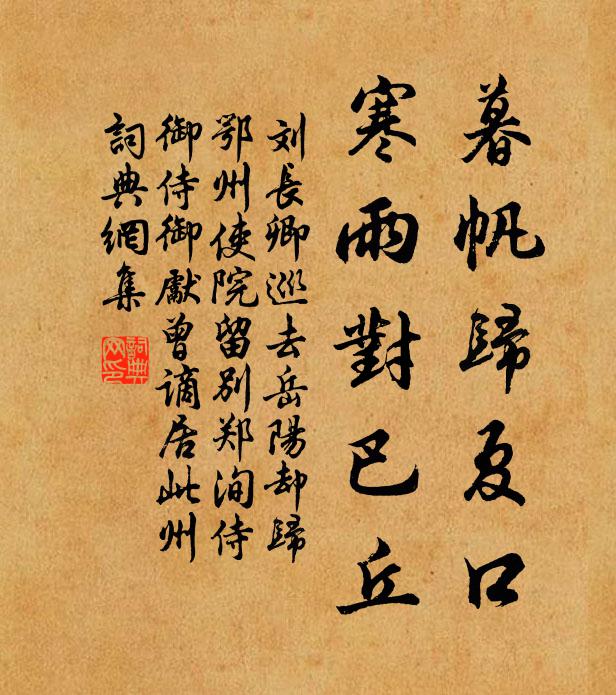 暮帆歸夏口
寒雨對巴丘
刘長卿巡去岳陽却歸
鄂州使院留别郑洵侍
御侍御獻曾谪居此州
詞典網集
詞典
网印